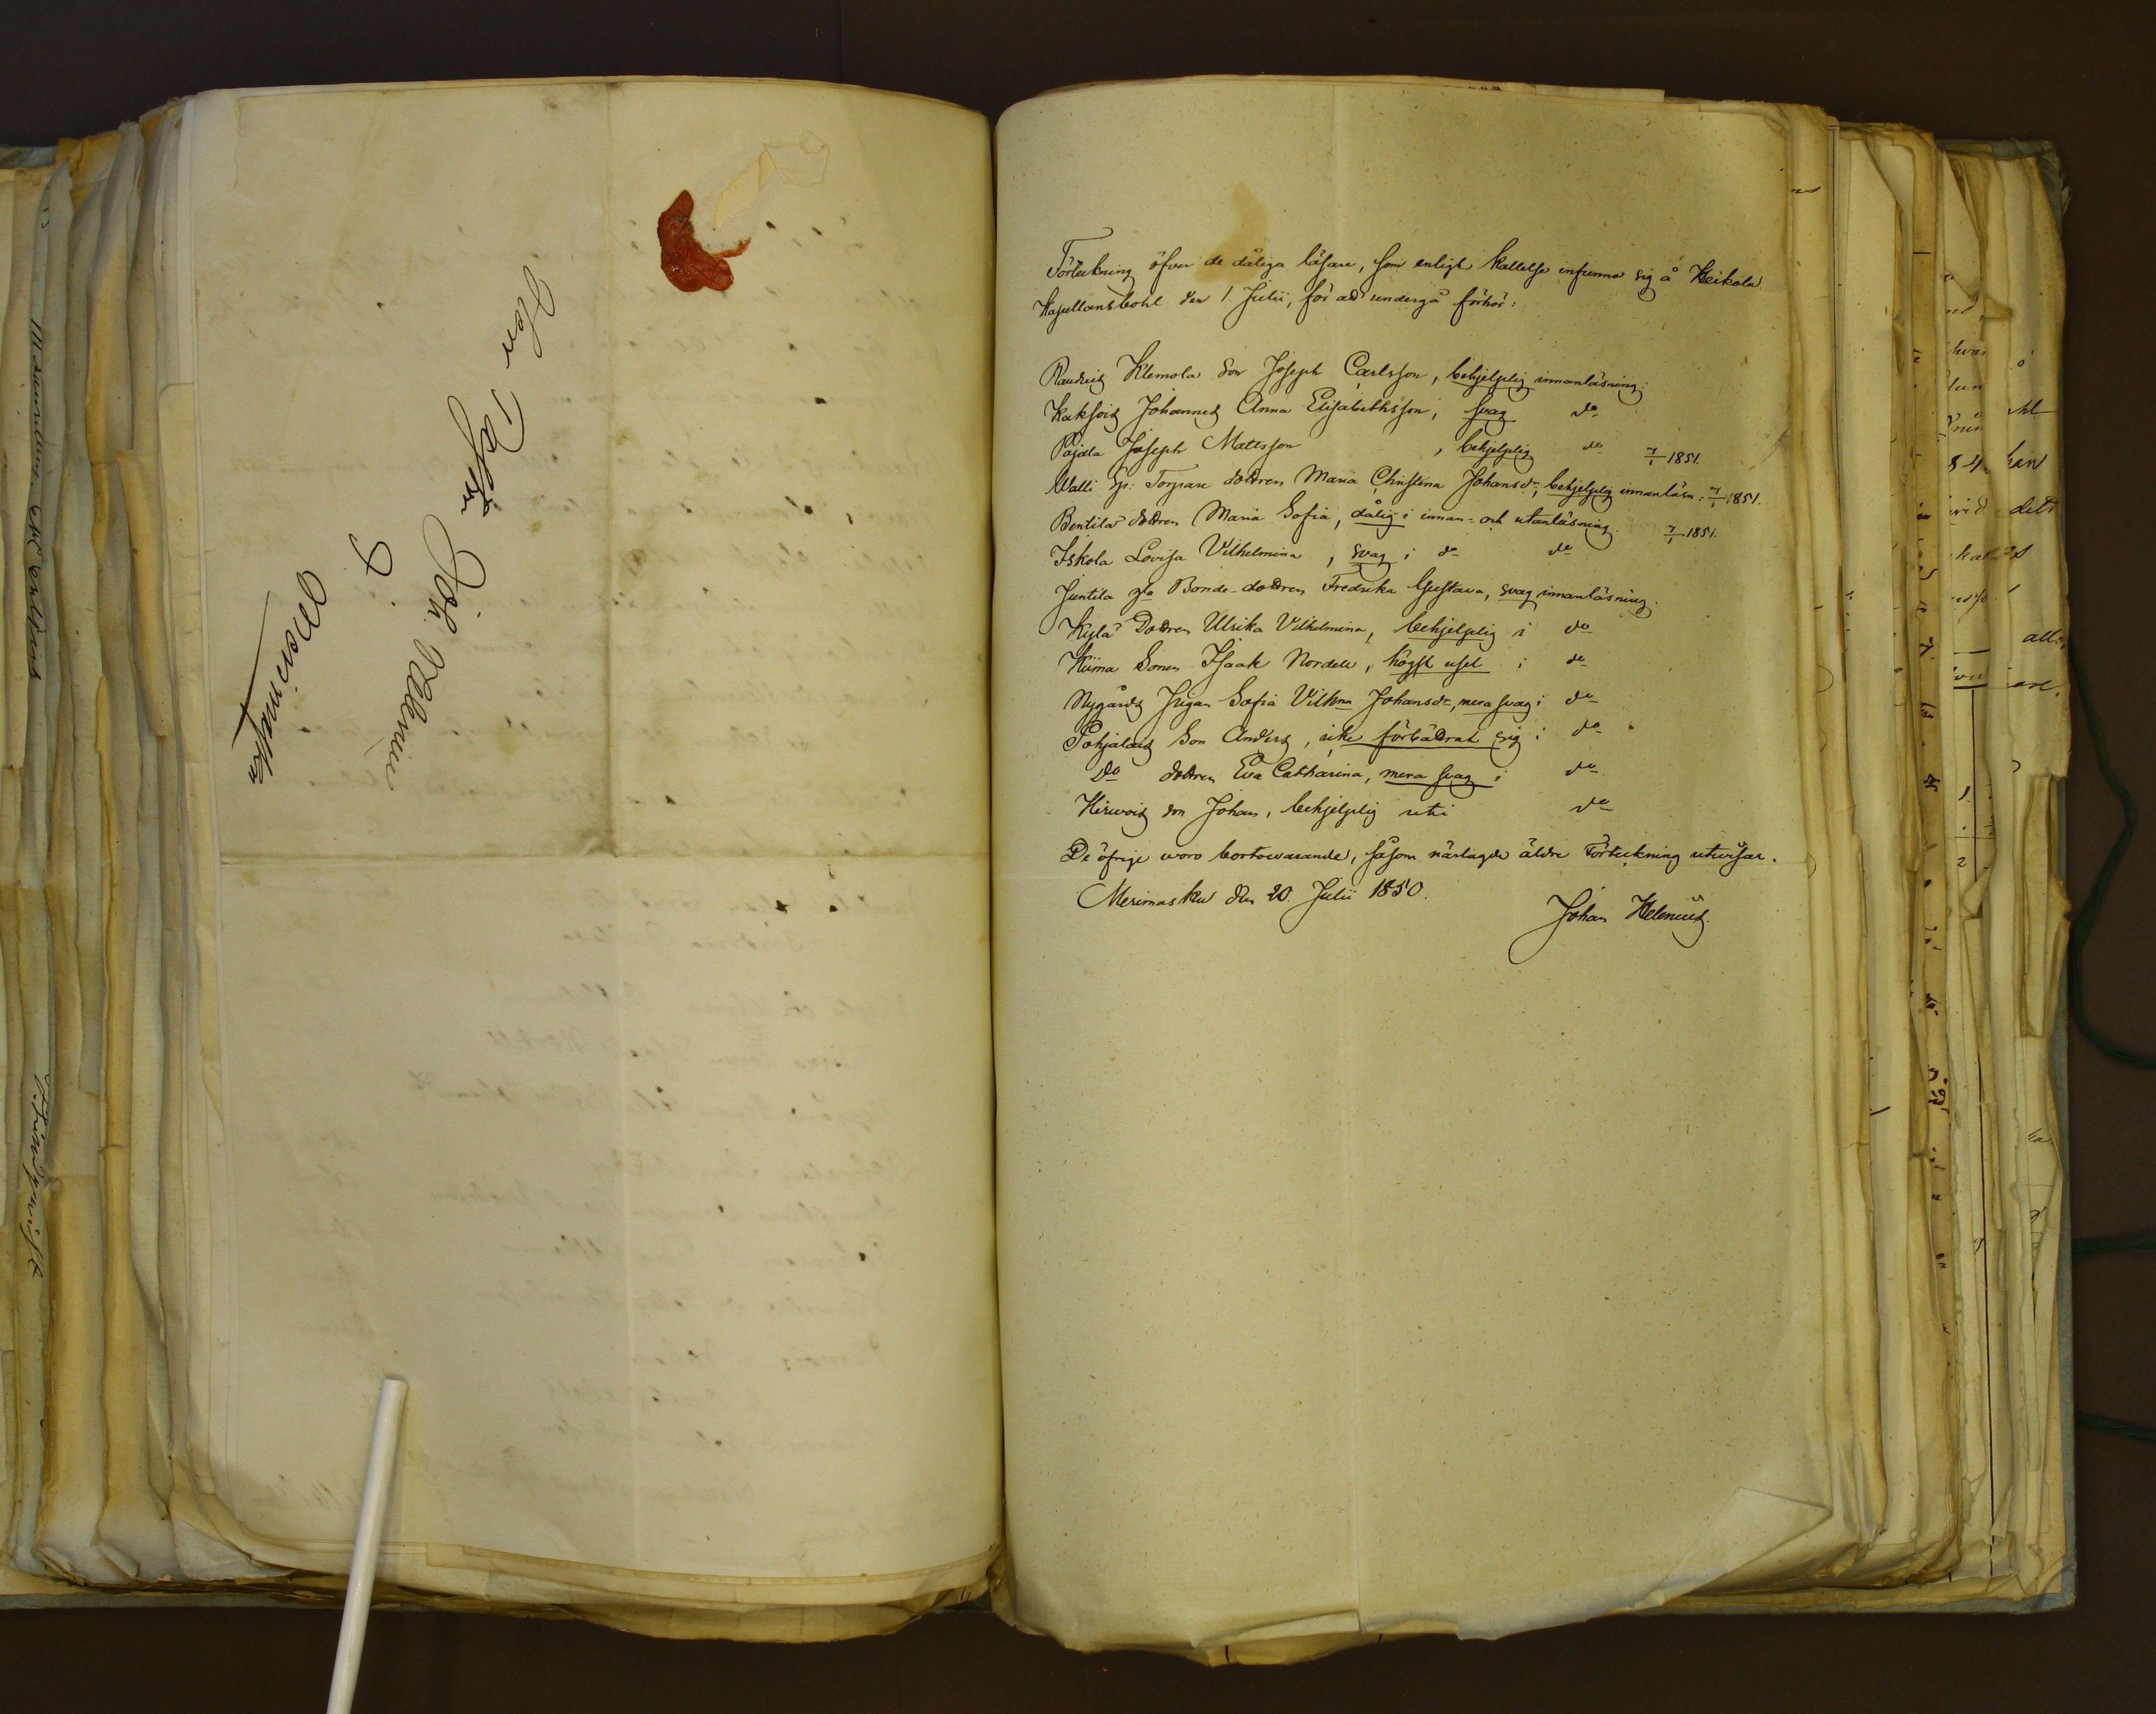 Herr Pastor
Joh. Helenius
P.
Merimasku
Förteckning öfver de dåliga läsare, som enligt kallelse infunno sig å Heikola
Kapellansbohl den 1. Julii, för att undergå förhör:
Raudais Klemola son Joseph Carlsson, behjelplig innanläsning.
Kaksois Johannes Anna Elisabethsson, svag do
Pajala Joseph Mattsson, behjelplig do 7/1 1851.
Walli Sp: Torpare dottren Maria Christina Johansdr, behjelplig innanläsn: 7/1 1851.
Bentilä dottren Maria Sofia, dålig i innan- och utanläsning. 7/1 1851.
Iskola Lovisa Vilhelmina, svag i do do
Juntila Bonde-dottren Fredrika Gustava, svag innanläsning.
Kylä Dottren Ulrika Vilhelmina, behjelplig i do
Kiima Sonen Isaak Nordell, högst usel i do
Nygårds Pigan Sofia Vilhma Johansdr, mera svag i do
Pohjalais Son Anders, icke förbättrat sig i do
Do dottren Eva Catharina, mera svag i do
Hirwois son Johan, behjelplig uti do
De öfrige woro bortowarande, såsom närlagde äldre Förteckning utwisar.
Merimasku den 20. Julii 1850.
Johan Helenius